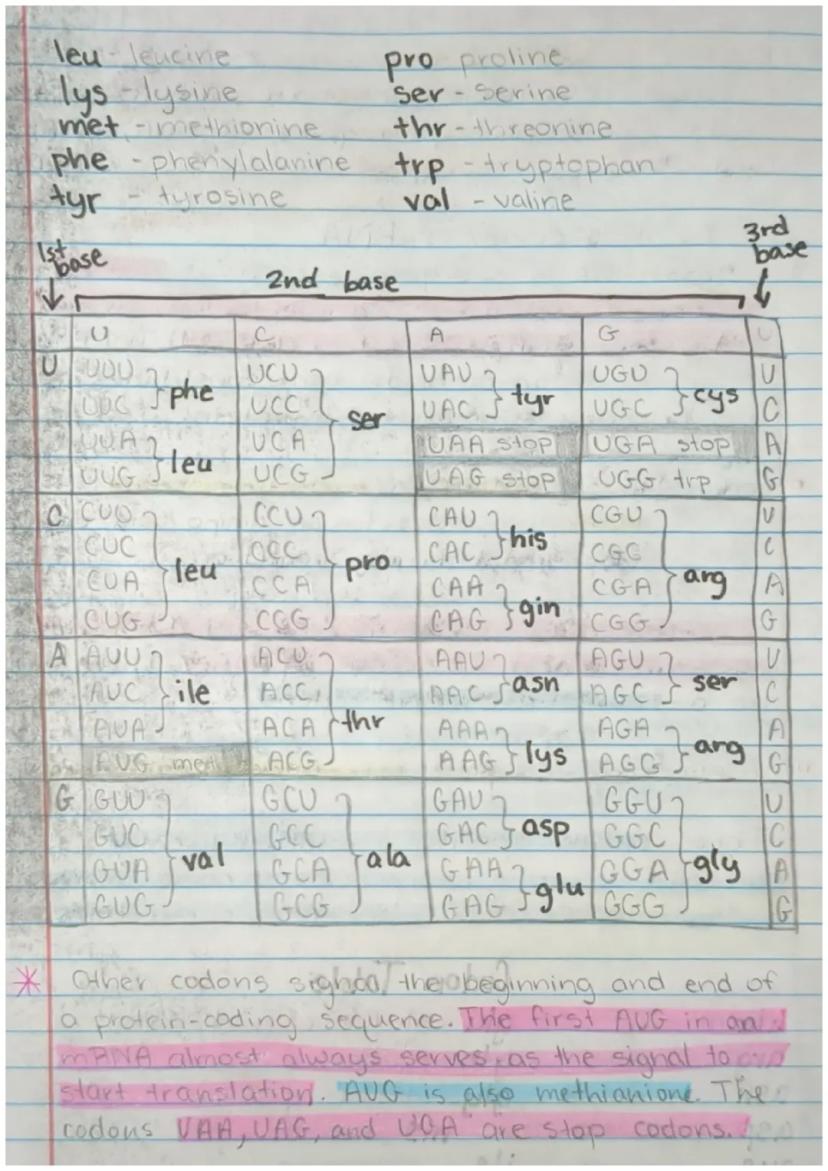 leu - leucine pro proline
lys - lysine ser - serine
met - methionine thr - threonine
phe - phenylalanine trp - tryptophan
tyr - tyrosine val - valine
1st base 2nd base 3rd base
U C A G
U UUU phe UCU ser UAU tyr UGU cys U
UUC UCC UAC UGC C
UUA leu UCA UAA stop UGA stop A
UUG UCG UAG stop UGG trp G
C CUU leu CCU pro CAU his CGU arg U
CUC CCC CAC CGC C
CUA CCA CAA gin CGA A
CUG CCG CAG CGG G
A AUU ile ACU thr AAU asn AGU ser U
AUC ACC AAC AGC C
AUA ACA AAA lys AGA arg A
AUG met ACG AAG AGG G
G GUU val GCU ala GAU asp GGU gly U
GUC GCC GAC GGC C
GUA GCA GAA glu GGA A
GUG GCG GAG GGG G
* Other codons signal the beginning and end of
a protein-coding sequence. The first AUG in an
mRNA almost always serves as the signal to
start translation. AUG is also methianione. The
codons UAA, UAG, and UGA are stop codons.